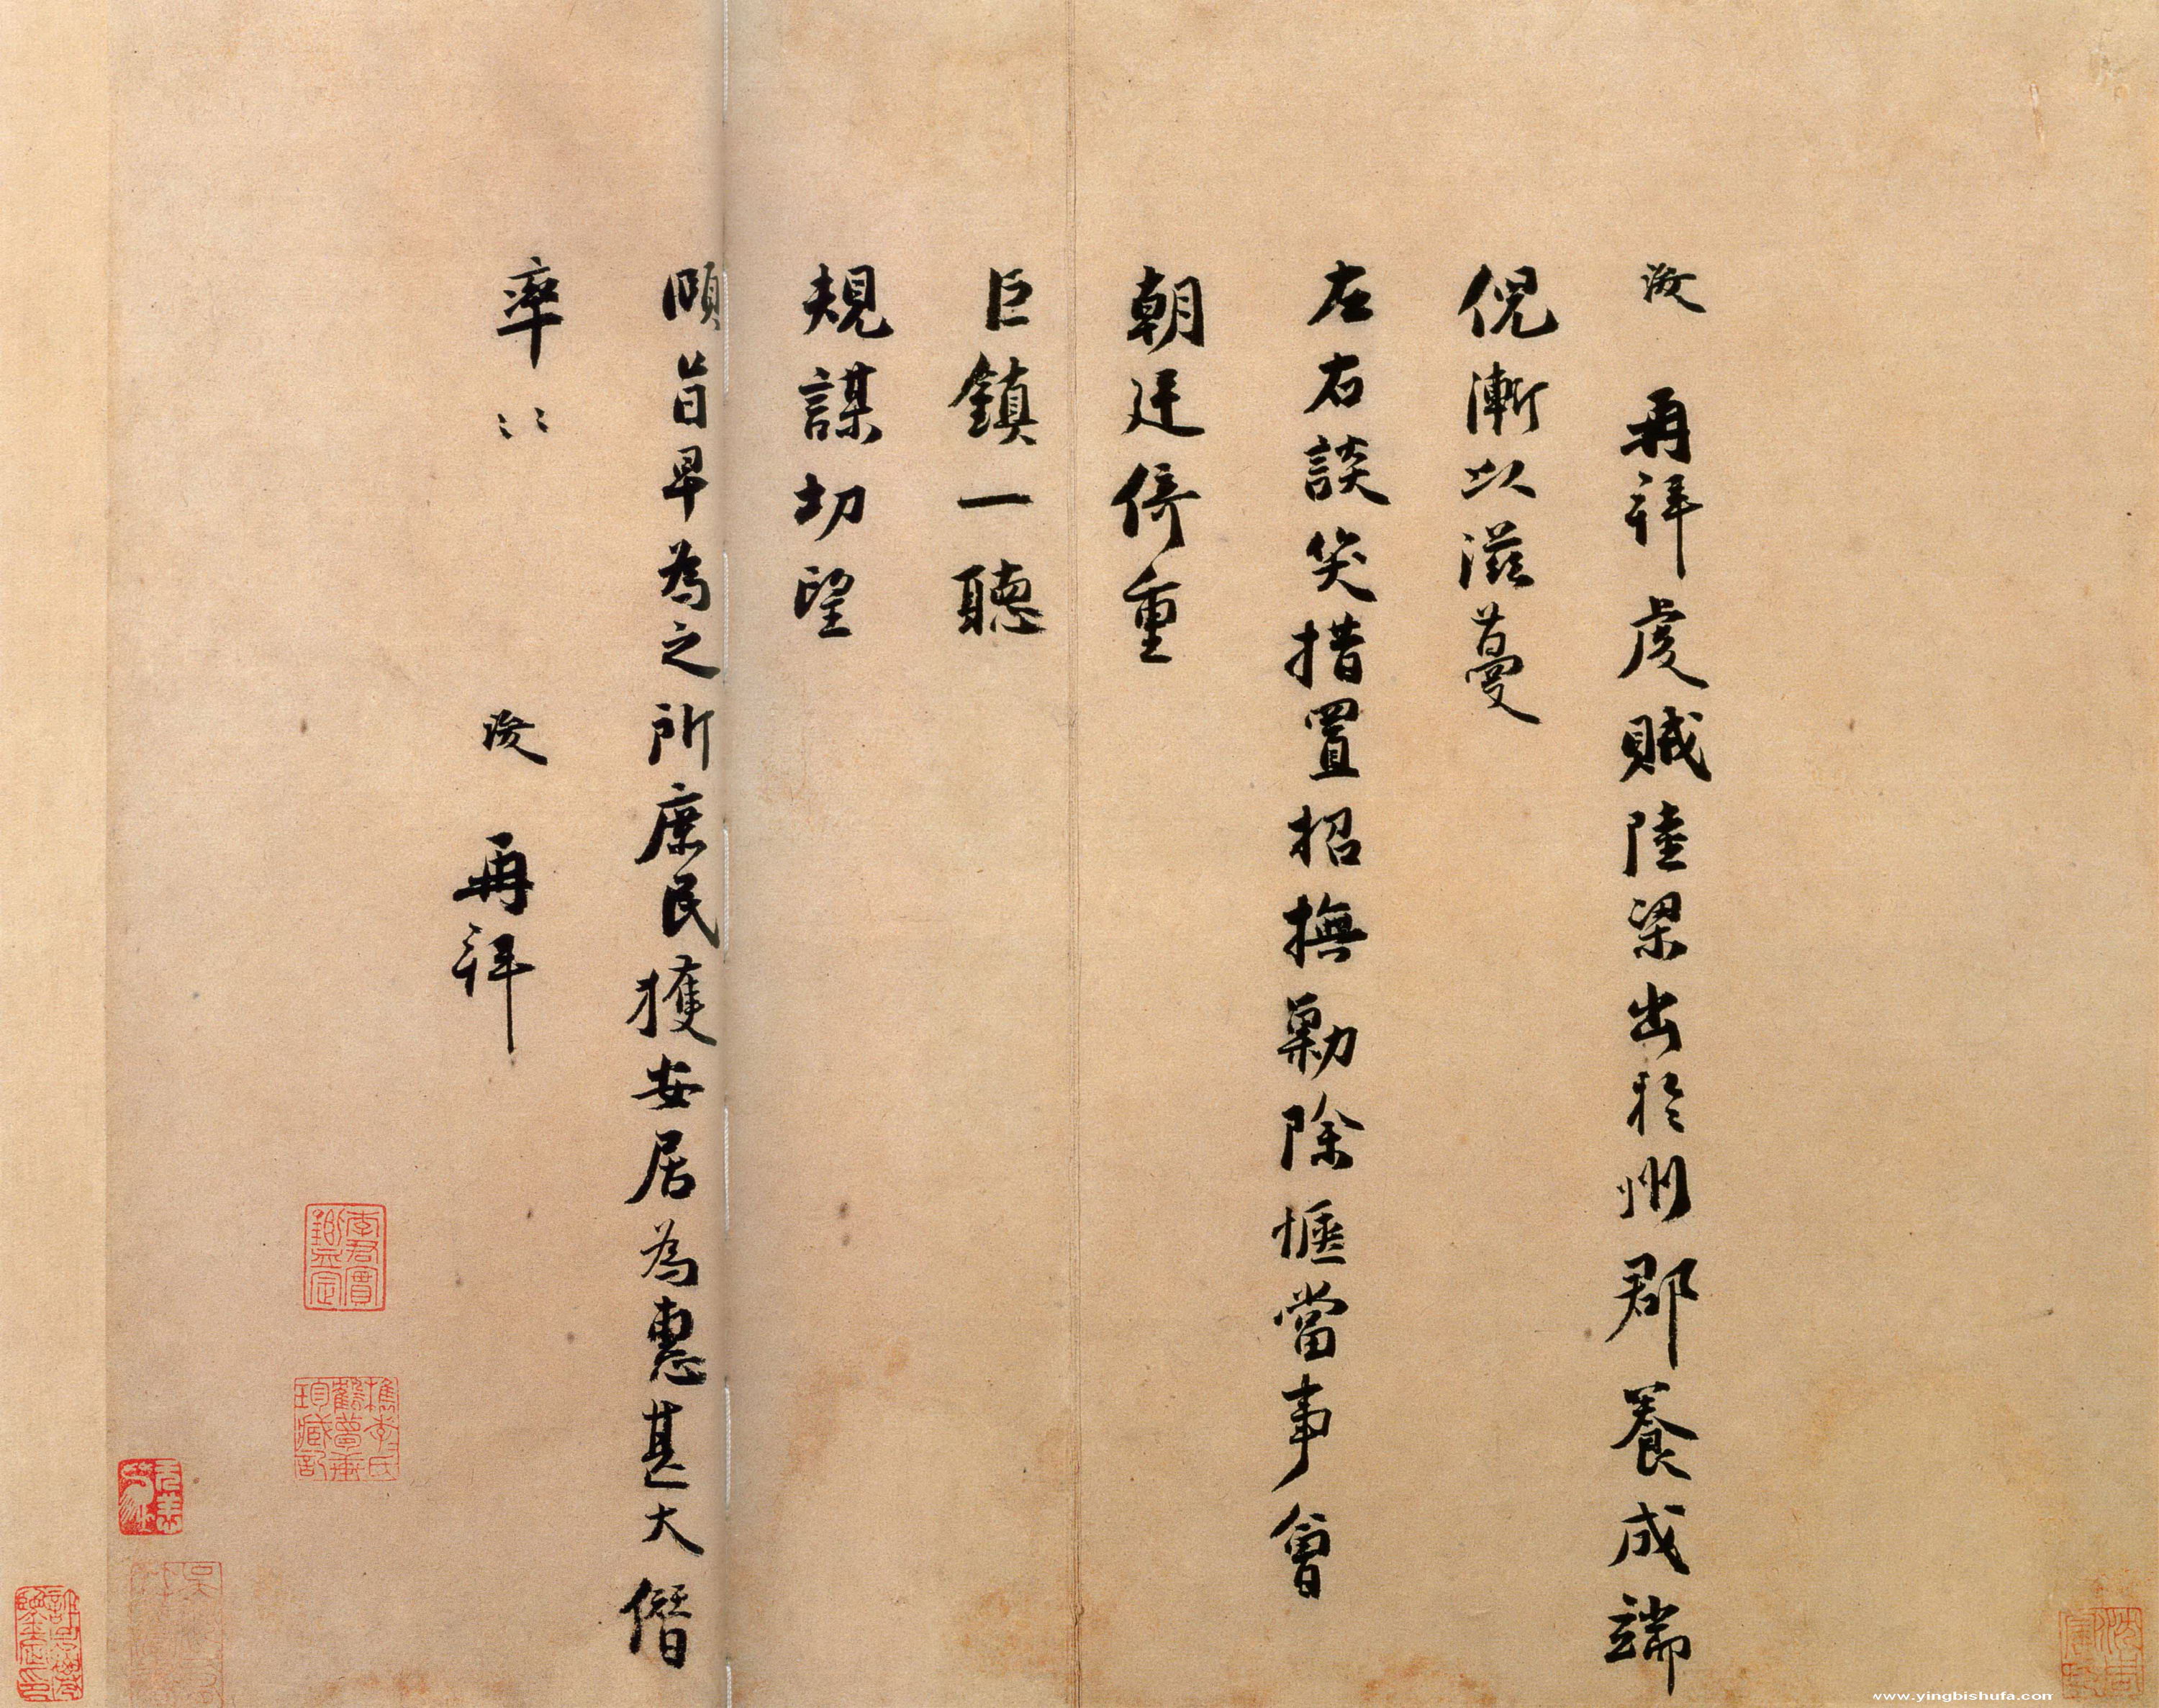 浚 再拜虔賊陸梁出於州郡養成端
倪漸以滋蔓
左右談笑措置招撫勦除愜當事會
朝廷倚重
巨鎮一聽
規謀切望
頤旨早為之所庶民獲安居為惠甚大僭
率々 浚 再拜
李君實鑒定
檇李李氏鶴夢軒珍藏記
www.yingbishufa.com